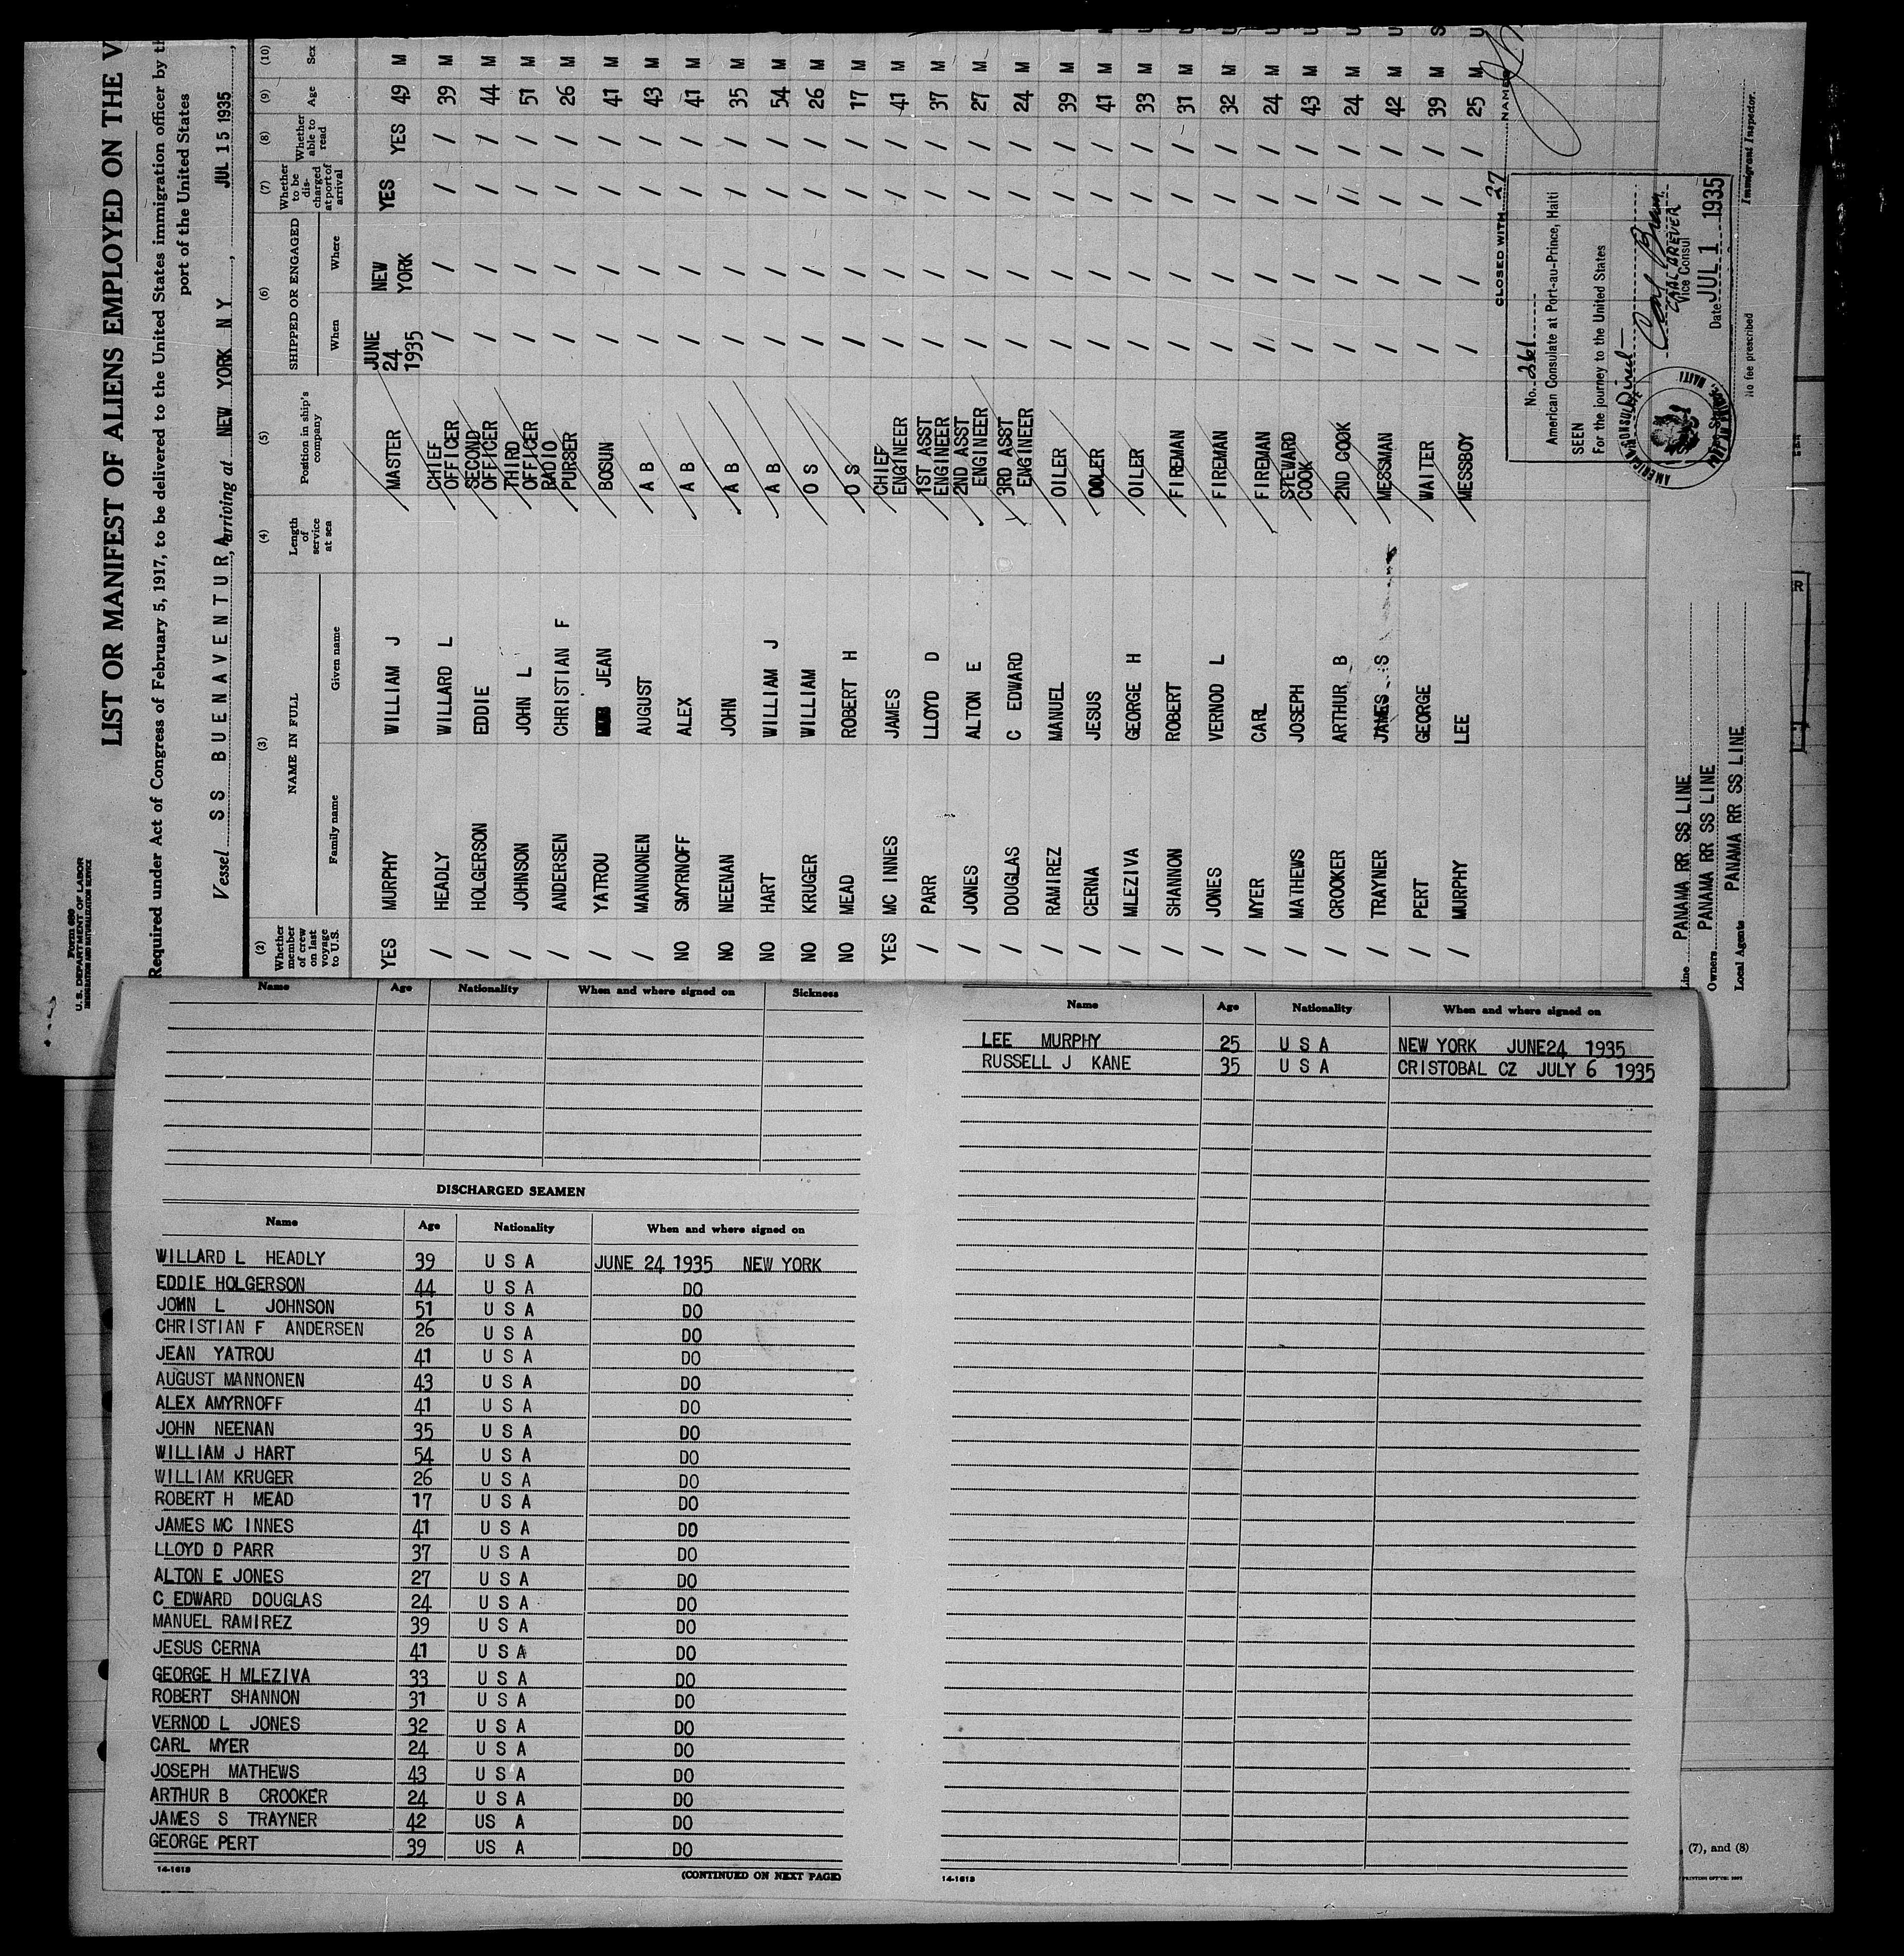 Form 680
U. S. DEPARTMENT OF LABOR
IMMIGRATION AND NATURALIZATION SERVICE
LIST OR MANIFEST OF ALIENS EMPLOYED ON THE V
Required under Act of Congress of February 5, 1917, to be delivered to the United States immigration officer by th
port of the United States
Vessel S S BUENAVENTURA, arriving at NEW YORK N Y, JUL 15 1935,
(2) Whether member of crew on last voyage to U.S. (3) NAME IN FULL Family name Given name (4) Length of service at sea (5) Position in ship's company (6) SHIPPED OR ENGAGED When Where (7) Whether to be discharged at port of arrival (8) Whether able to read (9) Age (10) Sex
YES MURPHY WILLIAM J MASTER JUNE 24 1935 NEW YORK YES YES 49 M
/ HEADLY WILLARD L CHIEF OFFICER / / / / 39 M
/ HOLGERSON EDDIE SECOND OFFICER / / / / 44 M
/ JOHNSON JOHN L THIRD OFFICER / / / / 51 M
/ ANDERSEN CHRISTIAN F RADIO PURSER / / / / 26 M
/ YATROU JEAN BOSUN / / / / 41 M
/ MANNONEN AUGUST A B / / / / 43 M
NO SMYRNOFF ALEX A B / / / / 41 M
NO NEENAN JOHN A B / / / / 35 M
NO HART WILLIAM J A B / / / / 54 M
NO KRUGER WILLIAM O S / / / / 26 M
NO MEAD ROBERT H O S / / / / 17 M
YES MC INNES JAMES CHIEF ENGINEER / / / / 41 M
/ PARR LLOYD D 1ST ASST ENGINEER / / / / 37 M
/ JONES ALTON E 2ND ASST ENGINEER / / / / 27 M
/ DOUGLAS C EDWARD 3RD ASST ENGINEER / / / / 24 M
/ RAMIREZ MANUEL OILER / / / / 39 M
/ CERNA JESUS OILER / / / / 41 M
/ MLEZIVA GEORGE H OILER / / / / 33 M
/ SHANNON ROBERT FIREMAN / / / / 31 M
/ JONES VERNOD L FIREMAN / / / / 32 M
/ MYER CARL FIREMAN / / / / 24 M
/ MATHEWS JOSEPH STEWARD COOK / / / / 43 M
/ CROOKER ARTHUR B 2ND COOK / / / / 24 M
/ TRAYNER JAMES S MESSMAN / / / / 42 M
/ PERT GEORGE WAITER / / / / 39 M
/ MURPHY LEE MESSBOY / / / / 25 M
CLOSED WITH 27 NAMES
No. 261
American Consulate at Port-au-Prince, Haiti
SEEN
For the journey to the United States
Direct
CARL BREUER
Vice Consul
Date JUL 1 1935
No fee prescribed
Immigrant Inspector.
Line PANAMA RR SS LINE
Owners PANAMA RR SS LINE
Local Agents PANAMA RR SS LINE
Name Age Nationality When and where signed on Sickness
DISCHARGED SEAMEN
Name Age Nationality When and where signed on
WILLARD L HEADLY 39 U S A JUNE 24 1935 NEW YORK
EDDIE HOLGERSON 44 U S A DO
JOHN L JOHNSON 51 U S A DO
CHRISTIAN F ANDERSEN 26 U S A DO
JEAN YATROU 41 U S A DO
AUGUST MANNONEN 43 U S A DO
ALEX AMYRNOFF 41 U S A DO
JOHN NEENAN 35 U S A DO
WILLIAM J HART 54 U S A DO
WILLIAM KRUGER 26 U S A DO
ROBERT H MEAD 17 U S A DO
JAMES MC INNES 41 U S A DO
LLOYD D PARR 37 U S A DO
ALTON E JONES 27 U S A DO
C EDWARD DOUGLAS 24 U S A DO
MANUEL RAMIREZ 39 U S A DO
JESUS CERNA 41 U S A DO
GEORGE H MLEZIVA 33 U S A DO
ROBERT SHANNON 31 U S A DO
VERNOD L JONES 32 U S A DO
CARL MYER 24 U S A DO
JOSEPH MATHEWS 43 U S A DO
ARTHUR B CROOKER 24 U S A DO
JAMES S TRAYNER 42 US A DO
GEORGE PERT 39 US A DO
14-1613 (CONTINUED ON NEXT PAGE)
Name Age Nationality When and where signed on
LEE MURPHY 25 U S A NEW YORK JUNE24 1935
RUSSELL J KANE 35 U S A CRISTOBAL CZ JULY 6 1935
14-1613
(7), and (8)